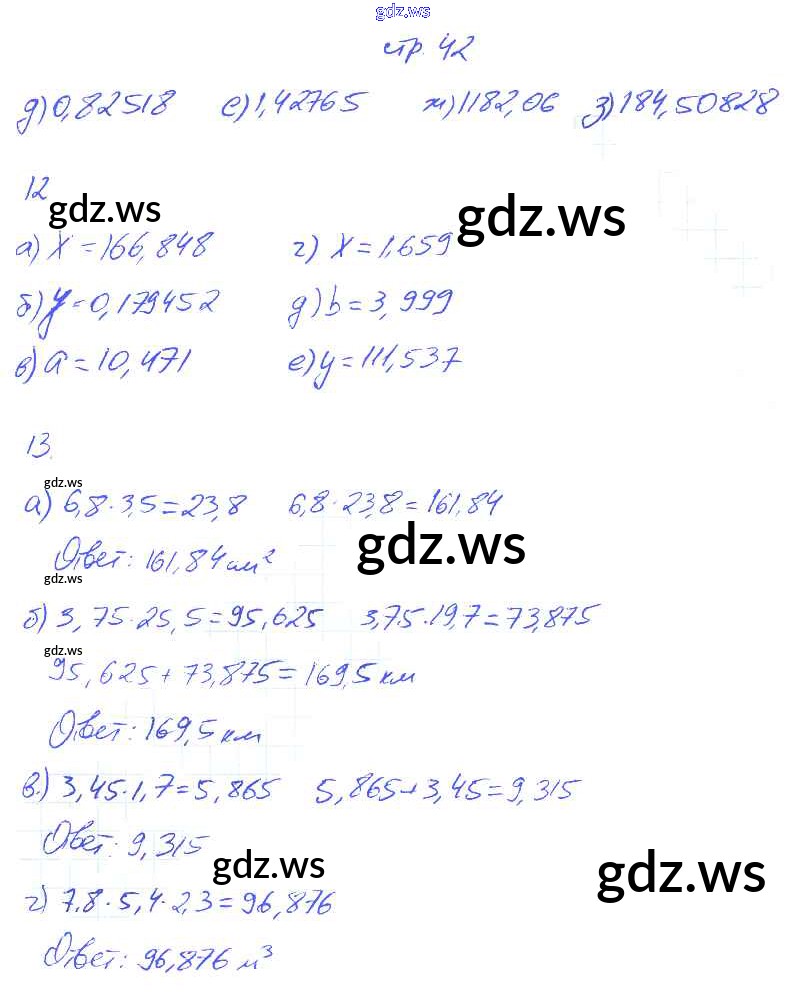 gdz.ws
стр. 42
д) 0,82518 е) 1,42765 ж) 1182,06 з) 184,50828
12
gdz.ws
gdz.ws
а) x = 166,848 г) x = 1,659
б) y = 0,179452 д) b = 3,999
в) a = 10,471 е) y = 111,537
13.
gdz.ws
а) 6,8 · 3,5 = 23,8 6,8 · 23,8 = 161,84
gdz.ws
Ответ: 161,84 см²
gdz.ws
б) 3,75 · 25,5 = 95,625 3,75 · 19,7 = 73,875
gdz.ws
95,625 + 73,875 = 169,5 км
Ответ: 169,5 км
в.) 3,45 · 1,7 = 5,865 5,865 + 3,45 = 9,315
Ответ: 9,315
gdz.ws
gdz.ws
г) 7,8 · 5,4 · 2,3 = 96,876
Ответ: 96,876 м³